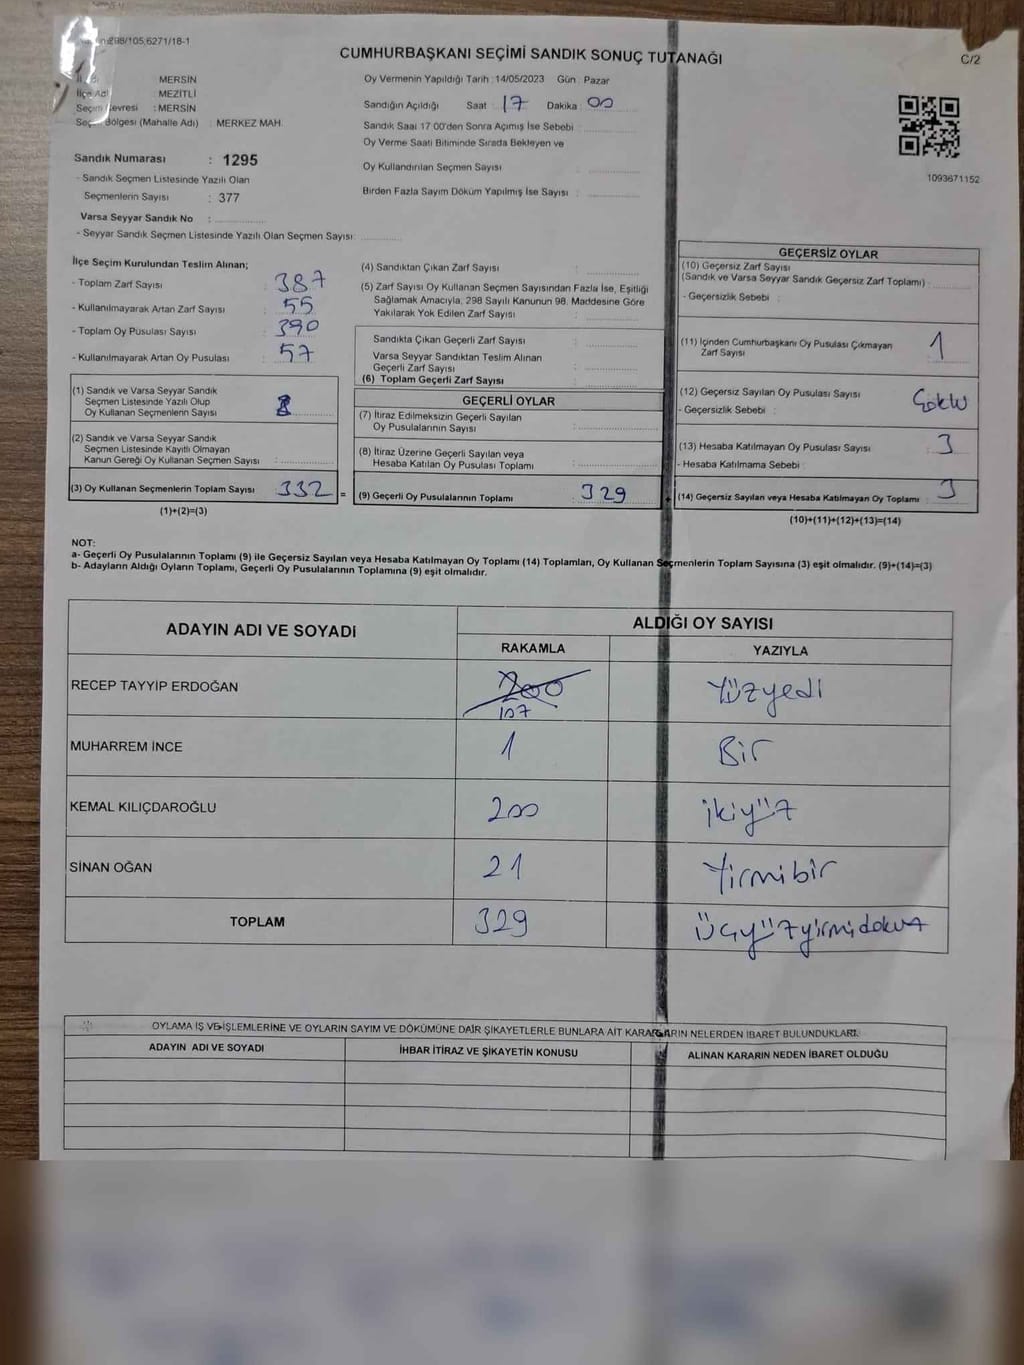 298/105,6271/18-1
CUMHURBAŞKANI SEÇİMİ SANDIK SONUÇ TUTANAĞI
C/2
MERSİN
İlçe Adı : MEZİTLİ
Seçim Çevresi : MERSİN
Seçim Bölgesi (Mahalle Adı) : MERKEZ MAH.
Sandık Numarası : 1295
- Sandık Seçmen Listesinde Yazılı Olan
Seçmenlerin Sayısı : 377
Varsa Seyyar Sandık No :
- Seyyar Sandık Seçmen Listesinde Yazılı Olan Seçmen Sayısı:
Oy Vermenin Yapıldığı Tarih : 14/05/2023 Gün : Pazar
Sandığın Açıldığı Saat 17 Dakika 00
Sandık Saat 17 00'den Sonra Açımış İse Sebebi :
Oy Verme Saati Bitiminde Sırada Bekleyen ve
Oy Kullandırılan Seçmen Sayısı
Birden Fazla Sayım Döküm Yapılmış İse Sayısı :
1093671152
İlçe Seçim Kurulundan Teslim Alınan;
- Toplam Zarf Sayısı : 387
- Kullanılmayarak Artan Zarf Sayısı : 55
- Toplam Oy Pusulası Sayısı : 390
- Kullanılmayarak Artan Oy Pusulası : 57
(1) Sandık ve Varsa Seyyar Sandık
Seçmen Listesinde Yazılı Olup
Oy Kullanan Seçmenlerin Sayısı :
(2) Sandık ve Varsa Seyyar Sandık
Seçmen Listesinde Kayıtlı Olmayan
Kanun Gereği Oy Kullanan Seçmen Sayısı :
(3) Oy Kullanan Seçmenlerin Toplam Sayısı : 332 =
(1)+(2)=(3)
(4) Sandıktan Çıkan Zarf Sayısı :
(5) Zarf Sayısı Oy Kullanan Seçmen Sayısından Fazla İse, Eşitliği
Sağlamak Amacıyla, 298 Sayılı Kanunun 98. Maddesine Göre
Yakılarak Yok Edilen Zarf Sayısı :
Sandıkta Çıkan Geçerli Zarf Sayısı :
Varsa Seyyar Sandıktan Teslim Alınan
Geçerli Zarf Sayısı :
(6) Toplam Geçerli Zarf Sayısı :
GEÇERLİ OYLAR
(7) İtiraz Edilmeksizin Geçerli Sayılan
Oy Pusulalarının Sayısı :
(8) İtiraz Üzerine Geçerli Sayılan veya
Hesaba Katılan Oy Pusulası Toplamı :
(9) Geçerli Oy Pusulalarının Toplamı : 329 +
GEÇERSİZ OYLAR
(10) Geçersiz Zarf Sayısı
(Sandık ve Varsa Seyyar Sandık Geçersiz Zarf Toplamı) :
- Geçersizlik Sebebi :
(11) İçinden Cumhurbaşkanı Oy Pusulası Çıkmayan
Zarf Sayısı : 1
(12) Geçersiz Sayılan Oy Pusulası Sayısı :
- Geçersizlik Sebebi :
(13) Hesaba Katılmayan Oy Pusulası Sayısı : 3
- Hesaba Katılmama Sebebi :
(14) Geçersiz Sayılan veya Hesaba Katılmayan Oy Toplamı : 3
(10)+(11)+(12)+(13)=(14)
NOT:
a- Geçerli Oy Pusulalarının Toplamı (9) ile Geçersiz Sayılan veya Hesaba Katılmayan Oy Toplamı (14) Toplamları, Oy Kullanan Seçmenlerin Toplam Sayısına (3) eşit olmalıdır. (9)+(14)=(3)
b- Adayların Aldığı Oyların Toplamı, Geçerli Oy Pusulalarının Toplamına (9) eşit olmalıdır.
ADAYIN ADI VE SOYADI
ALDIĞI OY SAYISI
RAKAMLA YAZIYLA
RECEP TAYYİP ERDOĞAN 200 107 Yüzyedi
MUHARREM İNCE 1 Bir
KEMAL KILIÇDAROĞLU 200 ikiyüz
SİNAN OĞAN 21 Yirmibir
TOPLAM 329 Üçyüzyirmidokuz
OYLAMA İŞ VE İŞLEMLERİNE VE OYLARIN SAYIM VE DÖKÜMÜNE DAİR ŞİKAYETLERLE BUNLARA AİT KARARLARIN NELERDEN İBARET BULUNDUKLARI.
ADAYIN ADI VE SOYADI İHBAR İTİRAZ VE ŞİKAYETİN KONUSU ALINAN KARARIN NEDEN İBARET OLDUĞU